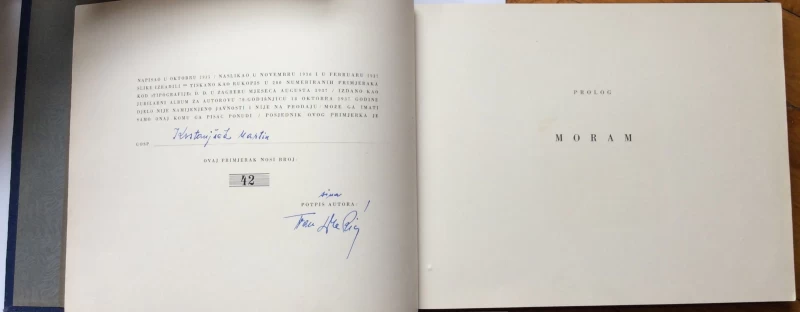 NAPISAO U OKTOBRU 1955 / NASLIKAO U NOVEMBRU 1956 I U FEBRUARU 1957
SLIKE IZRADILI TISKANO KAO RUKOPIS U 200 NUMERIRANIH PRIMJERAKA
KOD »TIPOGRAFIJE« U ZAGREBU MJESECA AUGUSTA 1957 / IZDANO KAO
JUBILARNI ALBUM ZA AUTOROVU 70-GODIŠNJICU 18 OKTOBRA 1957 GODINE
DJELO NIJE NAMIJENJENO JAVNOSTI I NIJE NA PRODAJU / MOŽE GA IMATI
SAMO ONAJ KOMU GA PISAC PONUDI / POSJEDNIK OVOG PRIMJERKA JE
Martin
OVAJ PRIMJERAK NOSI BROJ
42
POTPIS AUTORA:
PROLOG
MORAM